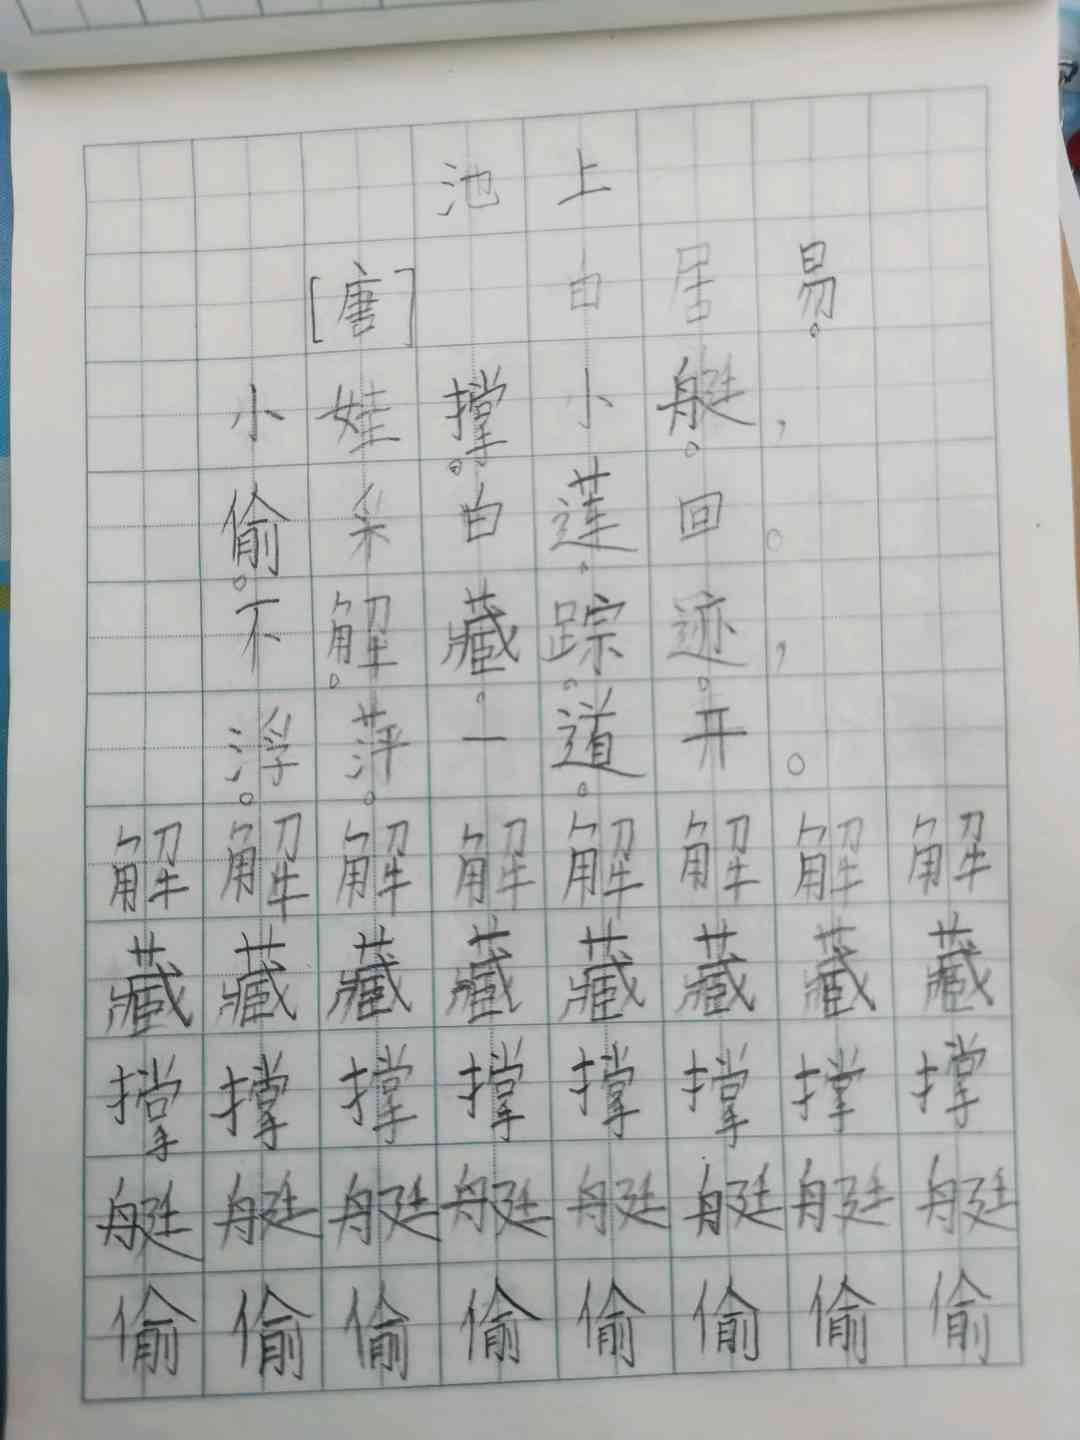 池上
[唐] 白居易
小娃撑小艇，
偷采白莲回。
不解藏踪迹，
浮萍一道开。
解解解解解解解解
藏藏藏藏藏藏藏藏
撑撑撑撑撑撑撑撑
艇艇艇艇艇艇艇艇
偷偷偷偷偷偷偷偷